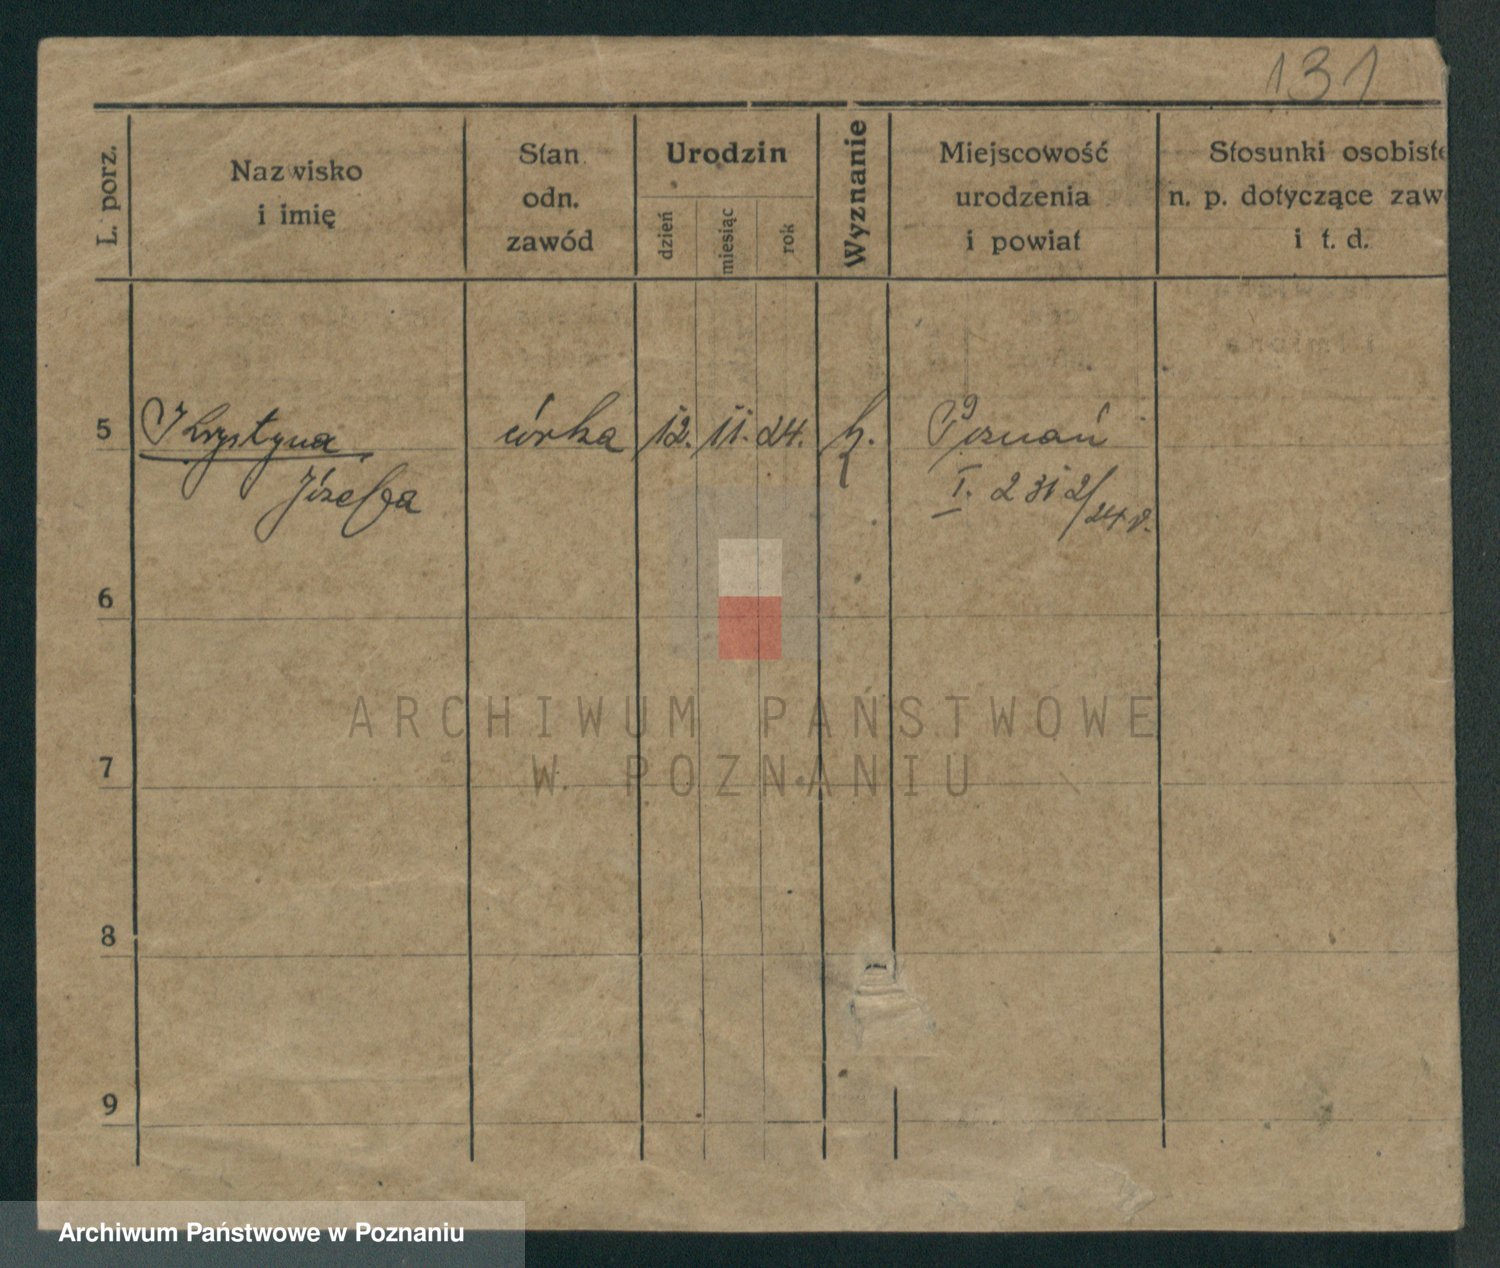 131
L. porz.
Nazwisko
i imię
Stan
odn.
zawód
Urodzin
dzień
miesiąc
rok
Wyznanie
Miejscowość
urodzenia
i powiat
Stosunki osobiste
n. p. dotyczące zaw
i t. d.
5 Krystyna córka 12. 11. 24. k. Poznań
Józefa I. 2312/24 r.
6
7
8
9
ARCHIWUM PAŃSTWOWE
W POZNANIU
Archiwum Państwowe w Poznaniu